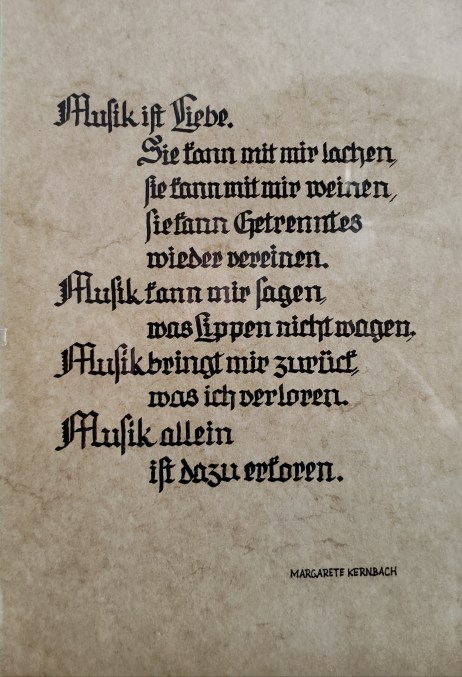 Musik ist Liebe.
Sie kann mit mir lachen,
sie kann mit mir weinen,
sie kann Getrenntes
wieder vereinen.
Musik kann mir sagen,
was Lippen nicht wagen.
Musik bringt mir zurück,
was ich verloren.
Musik allein
ist dazu erkoren.
MARGARETE KERNBACH